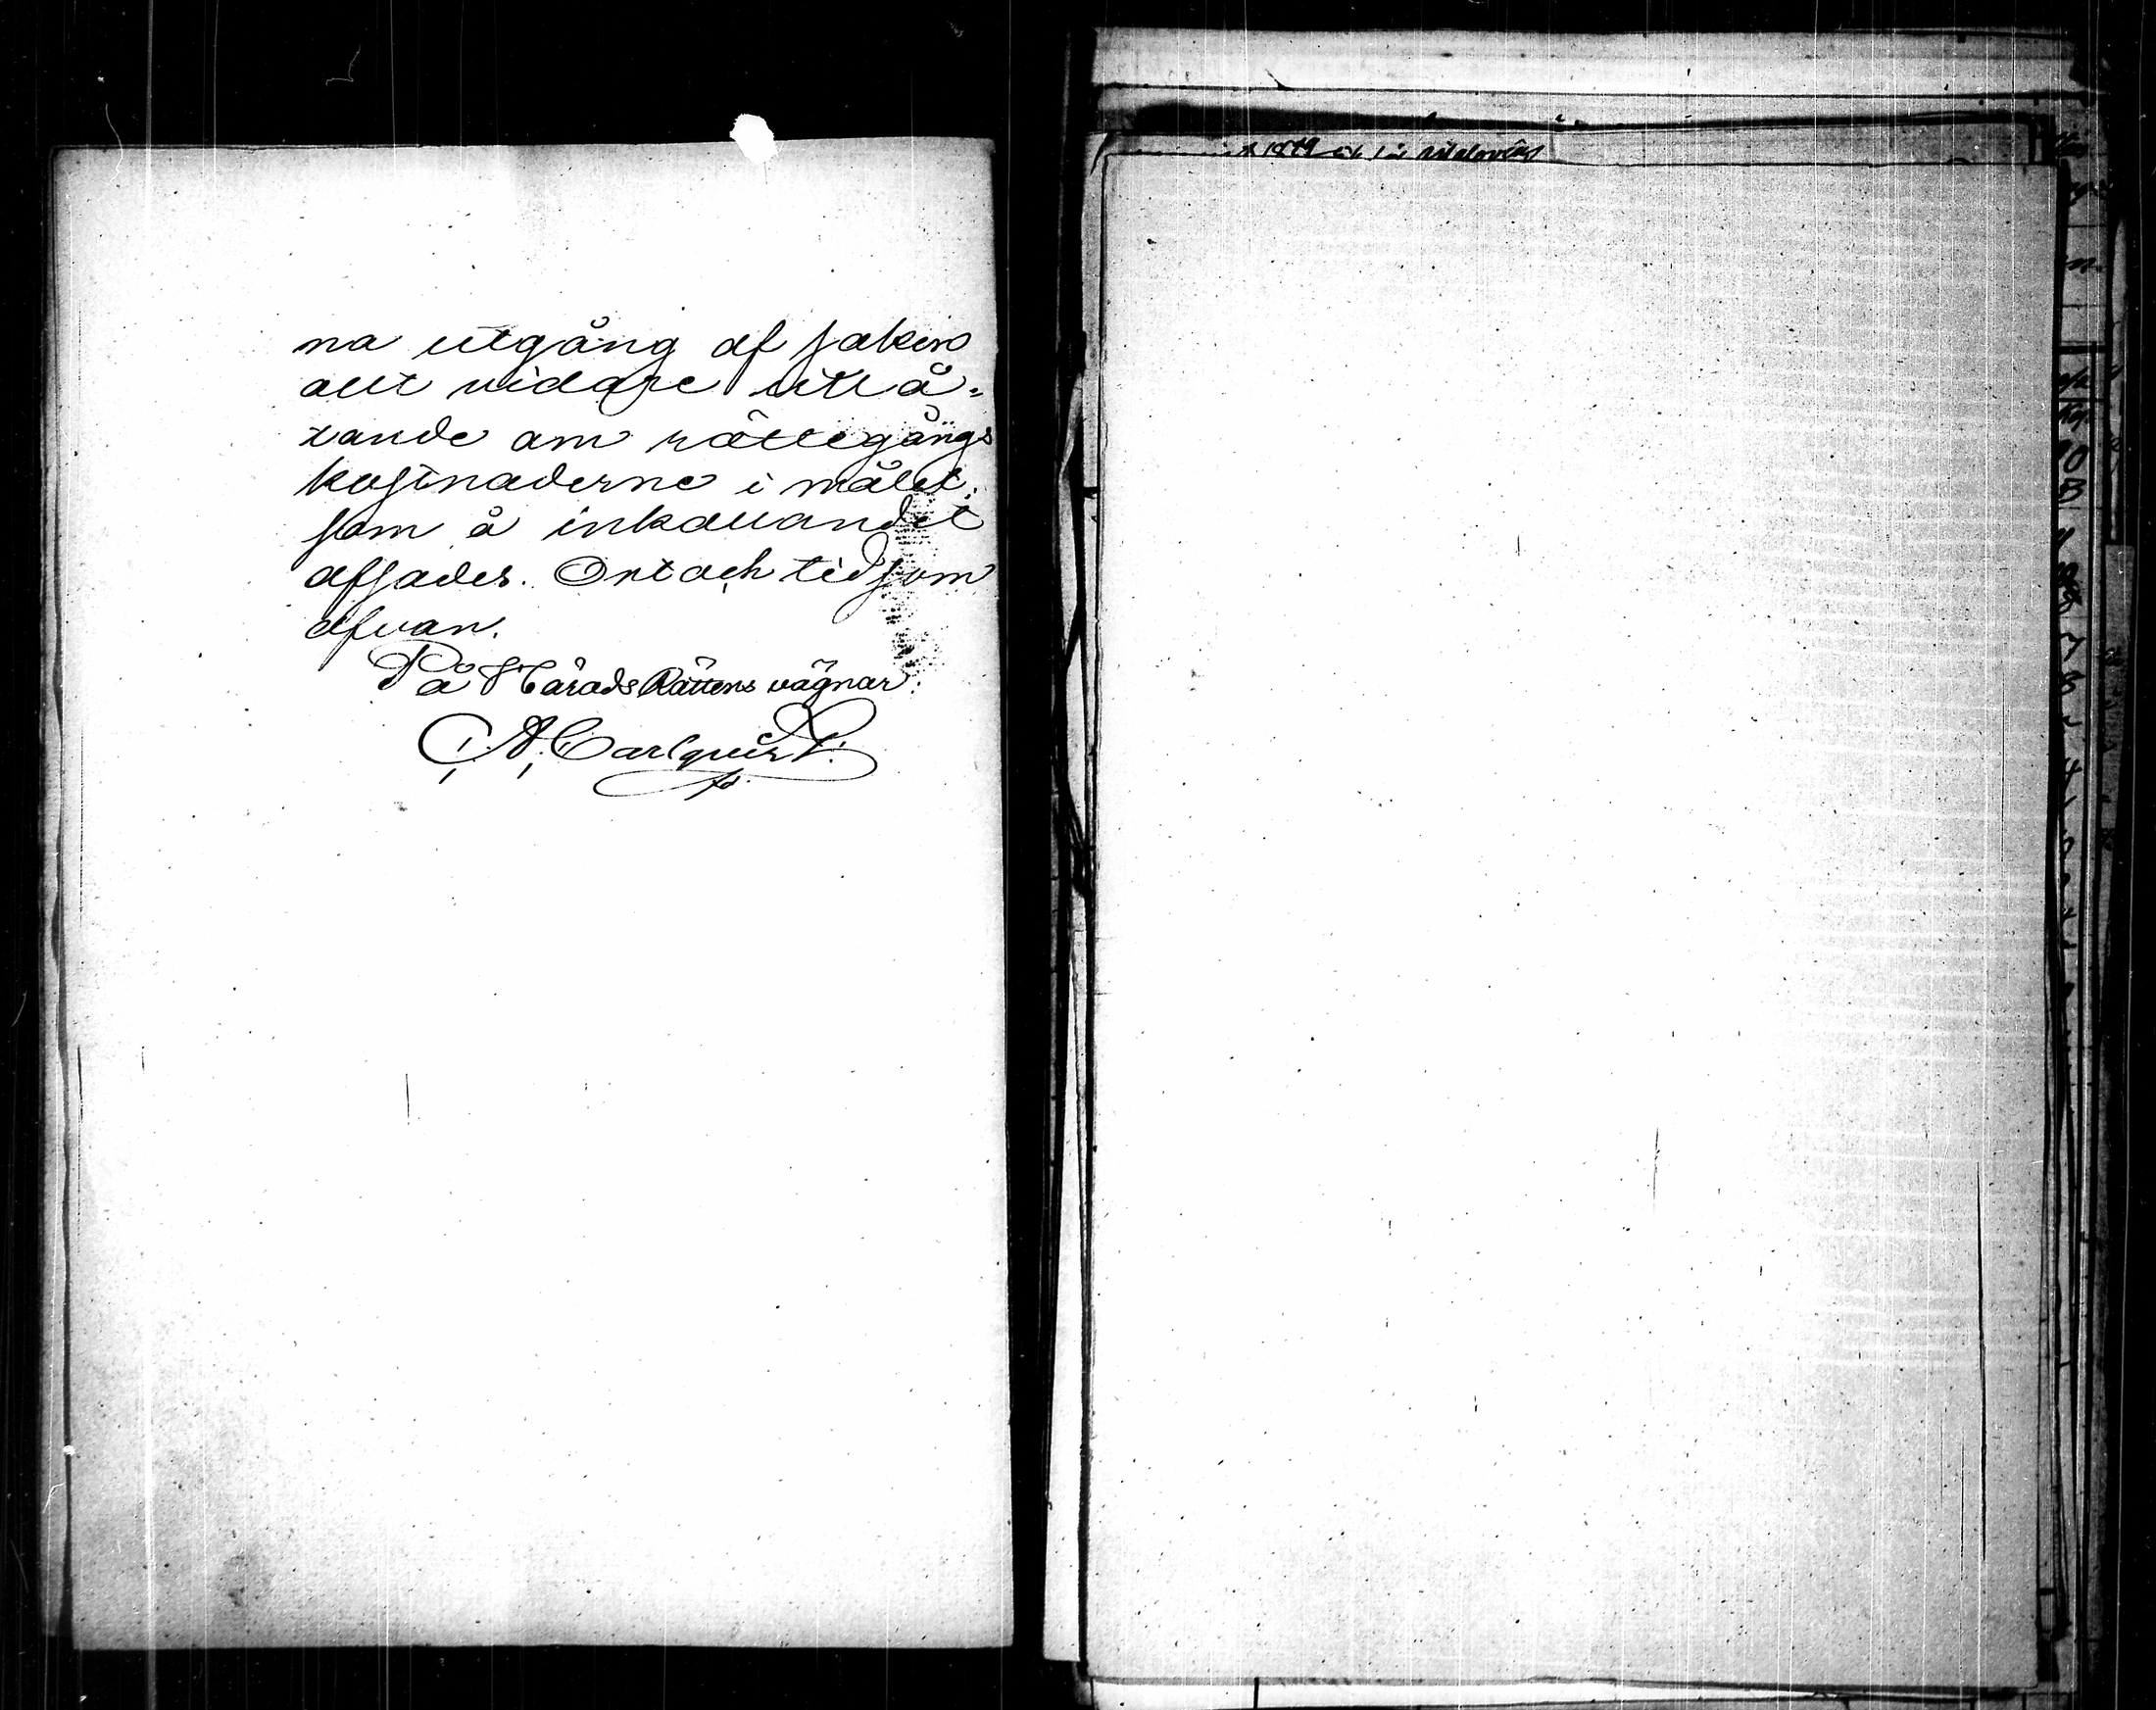 na utgång af saken
allt vidare utlå-
tande om rättegångs
kostnaderne i målet;
som å inkallandet
afsades. Ort och tid som
ofvan.
På Härads Rättens vägnar:
C. A. Carlquist.
1879